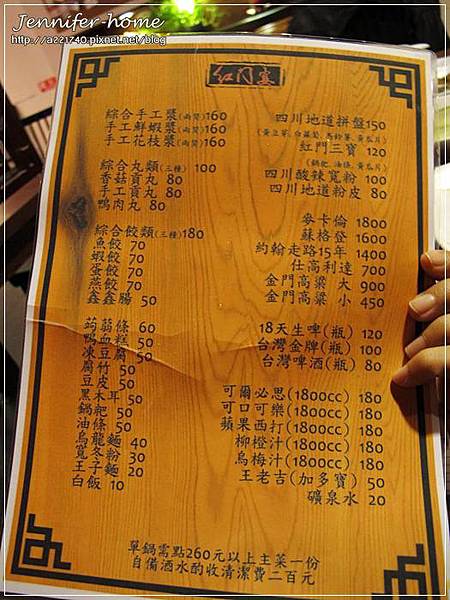 Jennifer-home
http://a221740.pixnet.net/blog
紅門宴
綜合手工漿(兩筒)160
手工鮮蝦漿(兩筒)160
手工花枝漿(兩筒)160
綜合丸類(三種) 100
香菇貢丸 80
手工貢丸 80
鴨肉丸 80
綜合餃類(三種)180
魚餃 70
蝦餃 70
蛋餃 70
燕餃 70
鑫鑫腸 50
蒟蒻條 60
鴨血糕 50
凍豆腐 50
腐竹 50
豆皮 50
黑木耳 50
鍋粑 50
油條 50
烏龍麵 40
寬冬粉 30
王子麵 20
白飯 10
四川地道拼盤150
紅門三寶 120
四川酸辣寬粉 100
四川地道粉皮 80
麥卡倫 1800
蘇格登 1600
約翰走路15年 1400
仕高利達 700
金門高粱 大 900
金門高粱 小 450
18天生啤(瓶) 120
台灣金牌(瓶) 100
台灣啤酒(瓶) 80
可爾必思(1800cc) 180
可口可樂(1800cc) 180
蘋果西打(1800cc) 180
柳橙汁(1800cc) 180
烏梅汁(1800cc) 180
王老吉(加多寶) 50
礦泉水 20
單鍋需點260元以上主菜一份
自備酒水酌收清潔費二百元
Jennifer-home